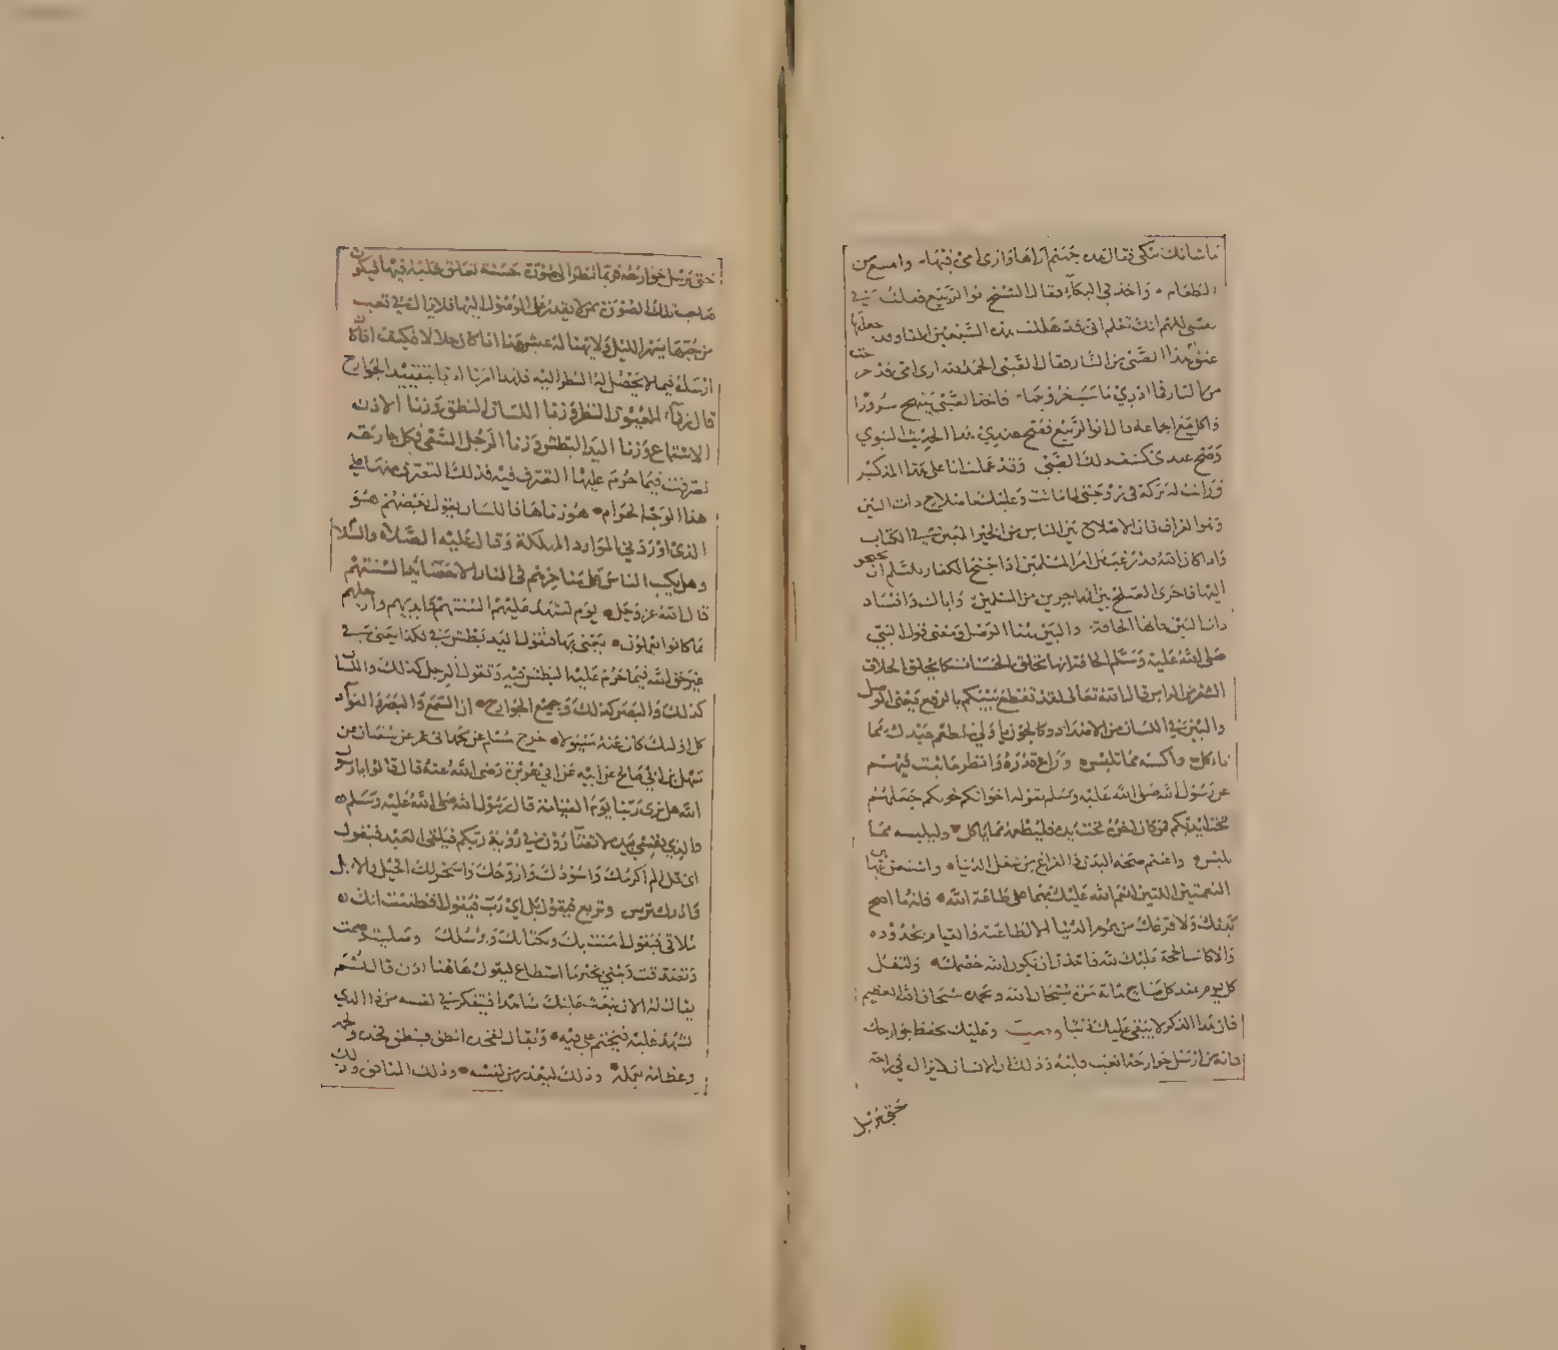 ما شانك تبكى فقال هذه جهنم اراها وارى امى فيها وامسع من
الطعام واخذ في البكاء فقال الشيخ ابو الربيع فقلت في
نفسي اللهم انك تعلم انى قد هللت هذه السبعين الفا وقد جعلتها
عتق ام هذا الصبى من النار فقال الصبى الحمد لله ارى امى قد خرجت
من النار وما ادري ما سبب خروجها فاخذ الصبى يبتهج سرورا
واكل مع الجماعة قال ابو الربيع فصح عندي هذا الحديث النبوي
وصح عندى كشف ذلك الصبى وقد عملت انا على هذا الذكر
ورايت له بركة فى زوجتى لما ماتت وعليك باصلاح ذات البين
وهو الفراق فان الاصلاح بين الناس من الخير المبين في الكتاب
واذا كان الله قد رغب بل امر المسلمين اذا جنح الكفار للسلم ان يجنح
اليها فاحرى الصلح بين المتهاجرين من المسلمين واياك وافساد
ذات البين فانها الحالقة والبين هنا الوصل ومعنى قول النبي
صلى الله عليه وسلم الحالقة انها تحلق الحسنات كما يحلق الحلاق
الشعر من الراس قال الله تعالى لقد تقطع بينكم بالرفع يعنى الوصل
والبين في اللسان من الاضداد كالجون يا ولى اطعم عبدك مما
تاكل واكسه مما تلبس وراع قدره وانظر ما ثبت فيهم
عن رسول الله صلى الله عليه وسلم بقوله اخوانكم خولكم جعلهم
تحت ايديكم فمن كان اخوه تحت يده فليطعمه مما ياكل وليلبسه مما
يلبس واغتنم صحة البدن والفراغ من شغل الدنيا واستعن بهاتين
النعمتين اللتين انعم الله عليك بهما على طاعة الله فانه ما اصح
بدنك ولا فرغك من هموم الدنيا الا لطاعته والقيام بحدوده
والا كانت الحجة عليك لله فاحذر ان يكون الله خصمك ولتقل
كل يوم عند كل صباح مائة مرة سبحان الله وبحمده سبحان الله العظيم
فان هذا الذكر لا يبقى عليك ذنبا وصية وعليك بحفظ جوارحك
فانه من ارسل جوارحه اتعب قلبه وذلك ان الانسان لا يزال في راحة
حتى يرسل
حتى يرسل جوارحه فربما نظر الى صورة حسنة تعلق قلبه فيها ليكون
صاحب تلك الصورة ممن لا يقدر على الوصول اليها فلا يزال في تعب
من حبها يسهر الليل ولا يهنا له عيش هذا اذا كان حلالا فكيف اذا كان
ارسله فيما لا يحصل له النظر اليه فلهذا امرنا بتقييد الجوارح
قال زنا العيون النظر وزنا اللسان النطق وزنا الاذن
الاستماع وزنا اليد البطش وزنا الرجل السعى فكل جارحة
تصرفت فيما حرم عليها التصرف فيه فذلك التصرف منها على
هذا الوجه الحرام هو زناها فاللسان يقول بعضهم هو
الذى اوردني الموارد المهلكة وقال عليه الصلاة والسلام
وهل يكب الناس على مناخرهم في النار الا حصائد السنتهم
قال الله عز وجل يوم تشهد عليهم السنتهم وايديهم وارجلهم
بما كانوا يعملون يعنى بها فتقول اليد بطش بي في كذا يعنى في
غير حق الله فيما حرم عليه البطش فيه وتقول الرجل كذلك واللسان
كذلك والبصر كذلك وجميع الجوارح ان السمع والبصر والفؤاد
كل اولئك كان عنه مسئولا خرج مسلم عن محمد بن ابي عمر عن سفيان عن
سهيل بن ابي صالح عن ابيه عن ابي هريرة رضى الله عنه قال قالوا يا رسول
الله هل نرى ربنا يوم القيامة قال رسول الله صلى الله عليه وسلم
والذي نفسي بيده لا تضارون في رؤية ربكم فيلقى العبد فيقول
اى فل الم اكرمك واسودك وازوجك واسخر لك الخيل والابل
واذرك تراس وتربع فيقول بلى اي رب فيقول افظننت انك
ملاقي فيقول امنت بك وبكتابك وبرسلك وصليت وصمت
وتصدقت ويثني بخير ما استطاع ليقول ههنا اذن قال ثم
يقال له الان نبعث عليك شاهدا فيتفكر في نفسه من ذا الذي
يشهد علي فيختم على فيه ويقال لفخذه انطقى فينطق فخذه ولحمه
وعظامه بعمله وذلك ليعذر من نفسه وذلك المنافق وذلك